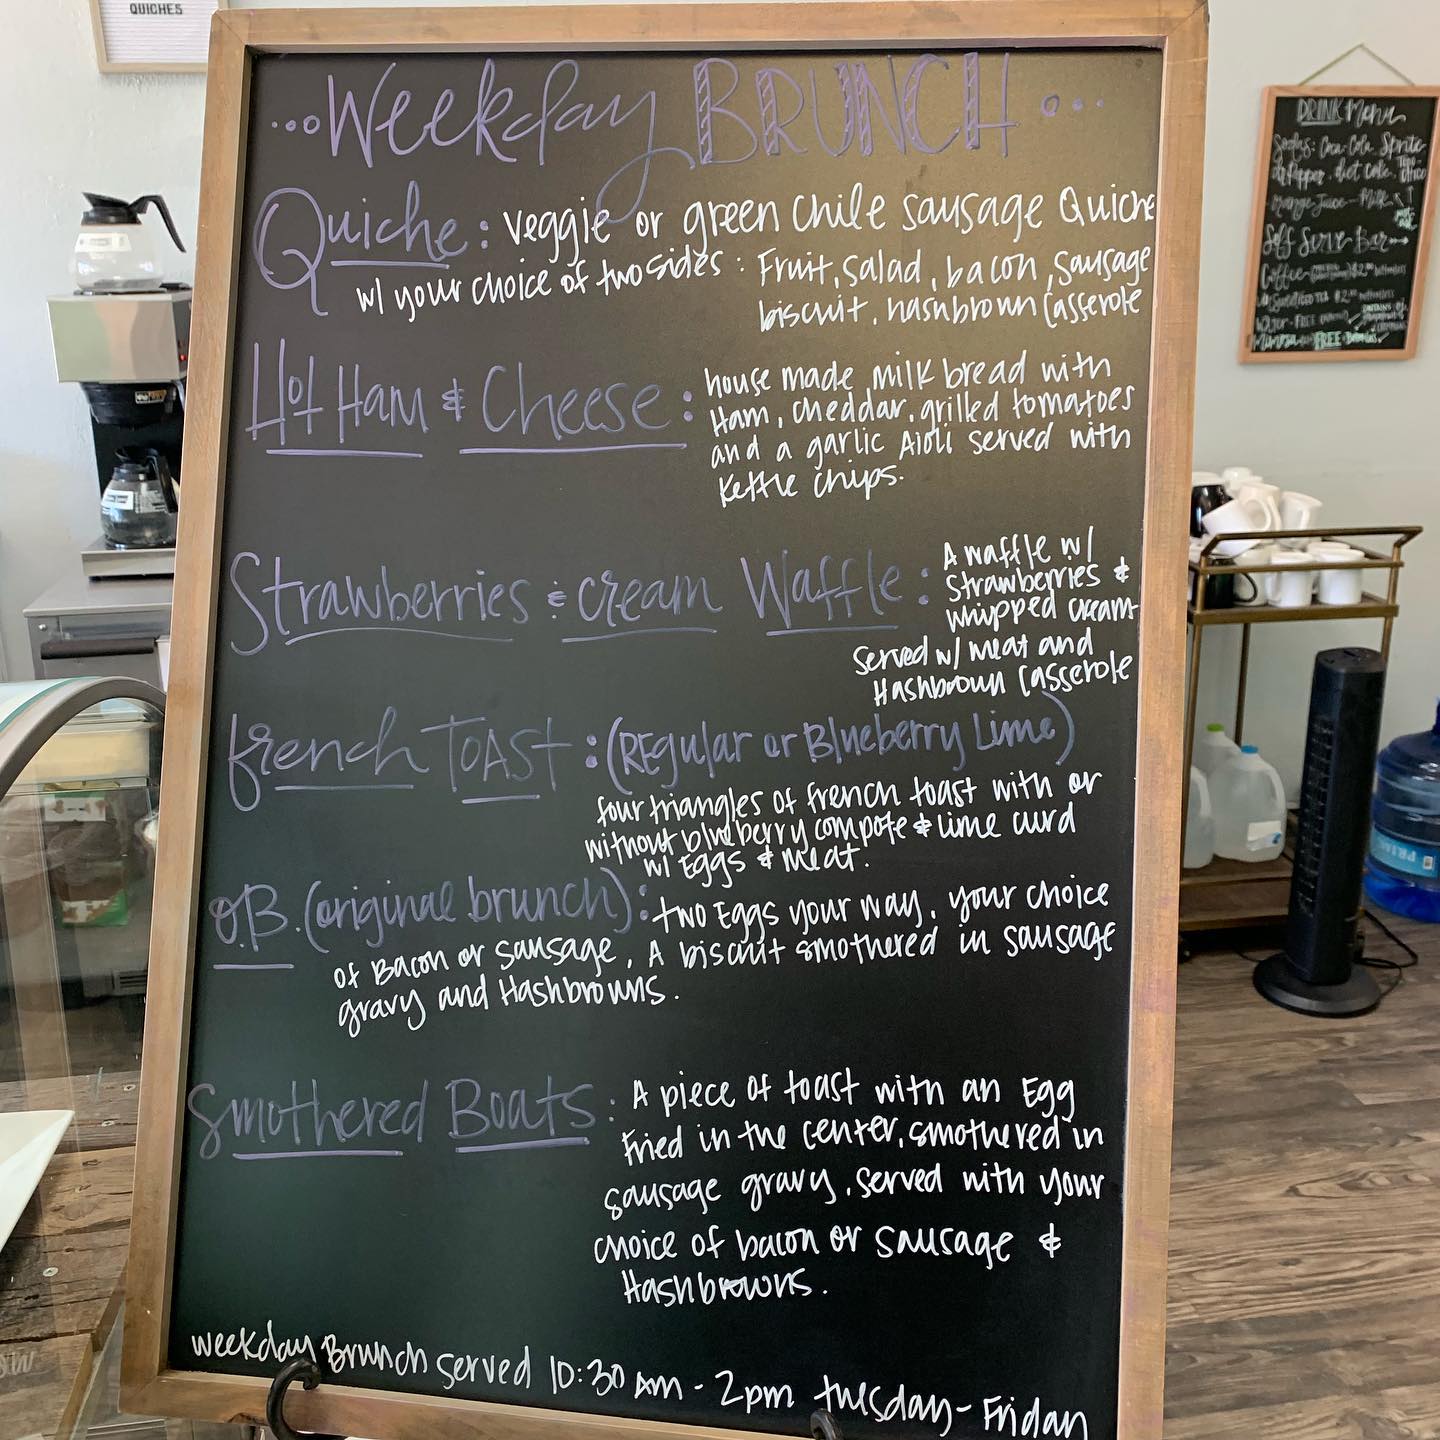 QUICHES
Weekday BRUNCH
Quiche: veggie or green chile sausage Quiche
w/ your choice of two sides: Fruit, salad, bacon, sausage
biscuit, hashbrown Casserole
Hot Ham & Cheese: house made milk bread with
Ham, cheddar, grilled tomatoes
and a garlic Aioli served with
Kettle chips.
Strawberries & cream Waffle: A waffle w/
Strawberries &
whipped cream
served w/ meat and
Hashbrown Casserole
French TOAST: (REgular or Blueberry Lime)
four triangles of french toast with or
without blueberry compote & lime curd
w/ Eggs & meat.
O.B. (original brunch): two Eggs your way, your choice
of Bacon or sausage, A biscuit smothered in sausage
gravy and Hashbrowns.
Smothered Boats: A piece of toast with an Egg
fried in the center, smothered in
sausage gravy, served with your
choice of bacon or sausage &
Hashbrowns.
weekday Brunch served 10:30 AM - 2pm tuesday - Friday
DRINK Menu
Sodas: Coca-Cola, Sprite
dr Pepper, diet coke,
Orange Juice - Milk
Self Serve Bar
Coffee
Water - FREE
Mimosa FREE